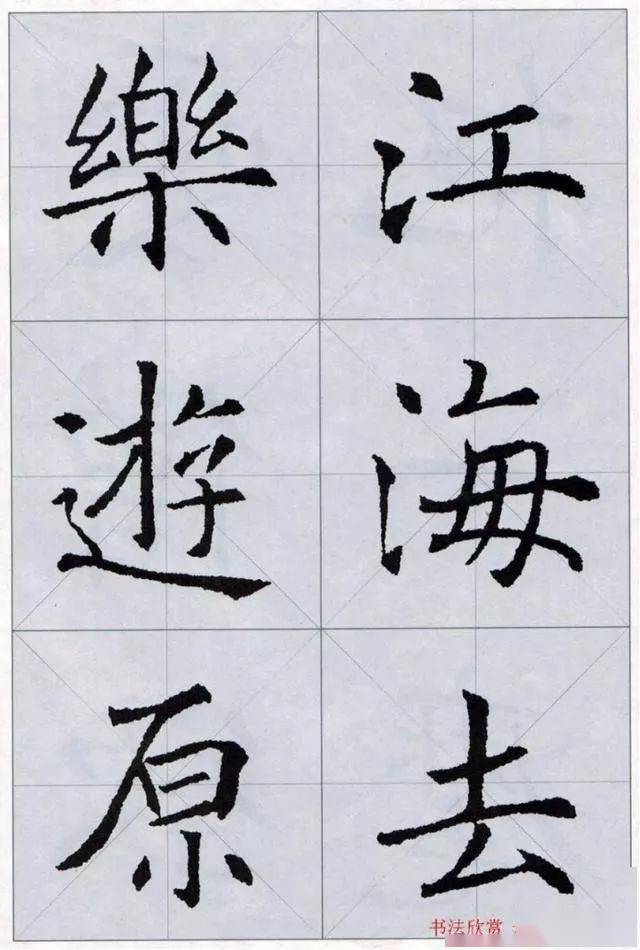 江海去
樂遊原
书法欣赏